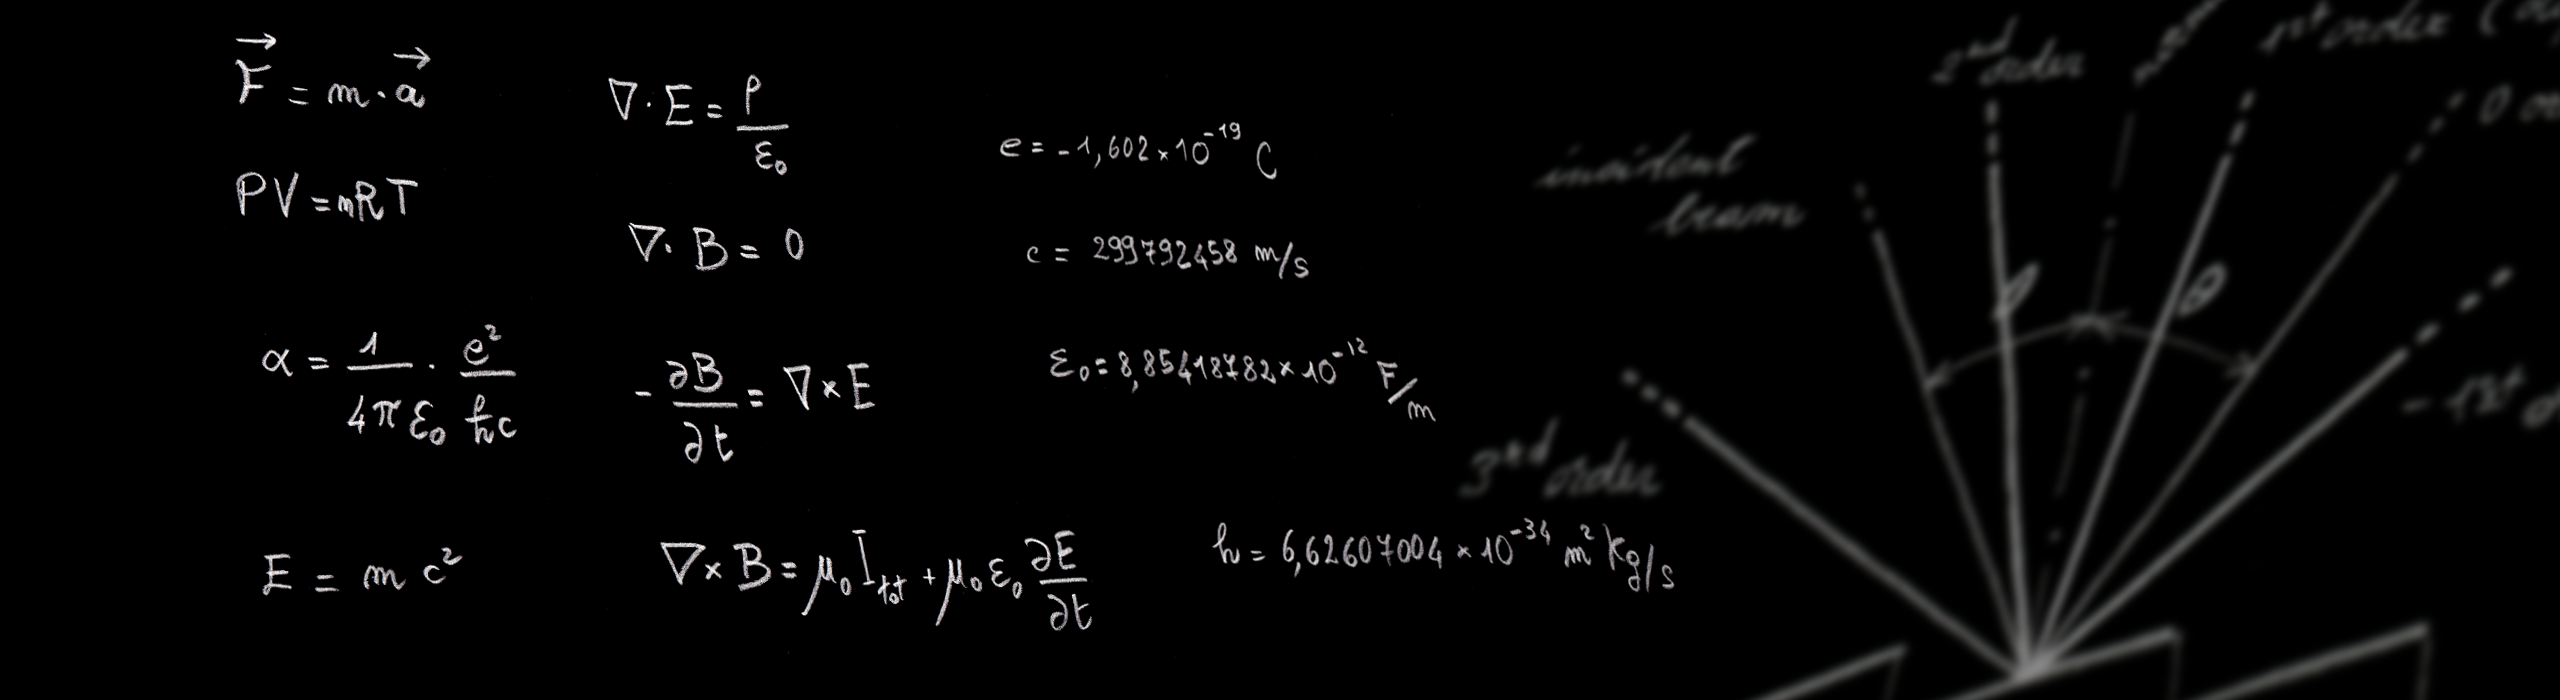 F⃗ = m · a⃗
PV = nRT
α = 1/(4πε₀) · e²/(ħc)
E = m c²
∇ · E = ρ/ε₀
∇ · B = 0
- ∂B/∂t = ∇ × E
∇ × B = μ₀ I_tot + μ₀ ε₀ ∂E/∂t
e = -1,602 × 10⁻¹⁹ C
c = 299792458 m/s
ε₀ = 8,85418782 × 10⁻¹² F/m
h = 6,62607004 × 10⁻³⁴ m² kg/s
incident
beam
2nd order
1st order (
0
θ
3rd order
-1st